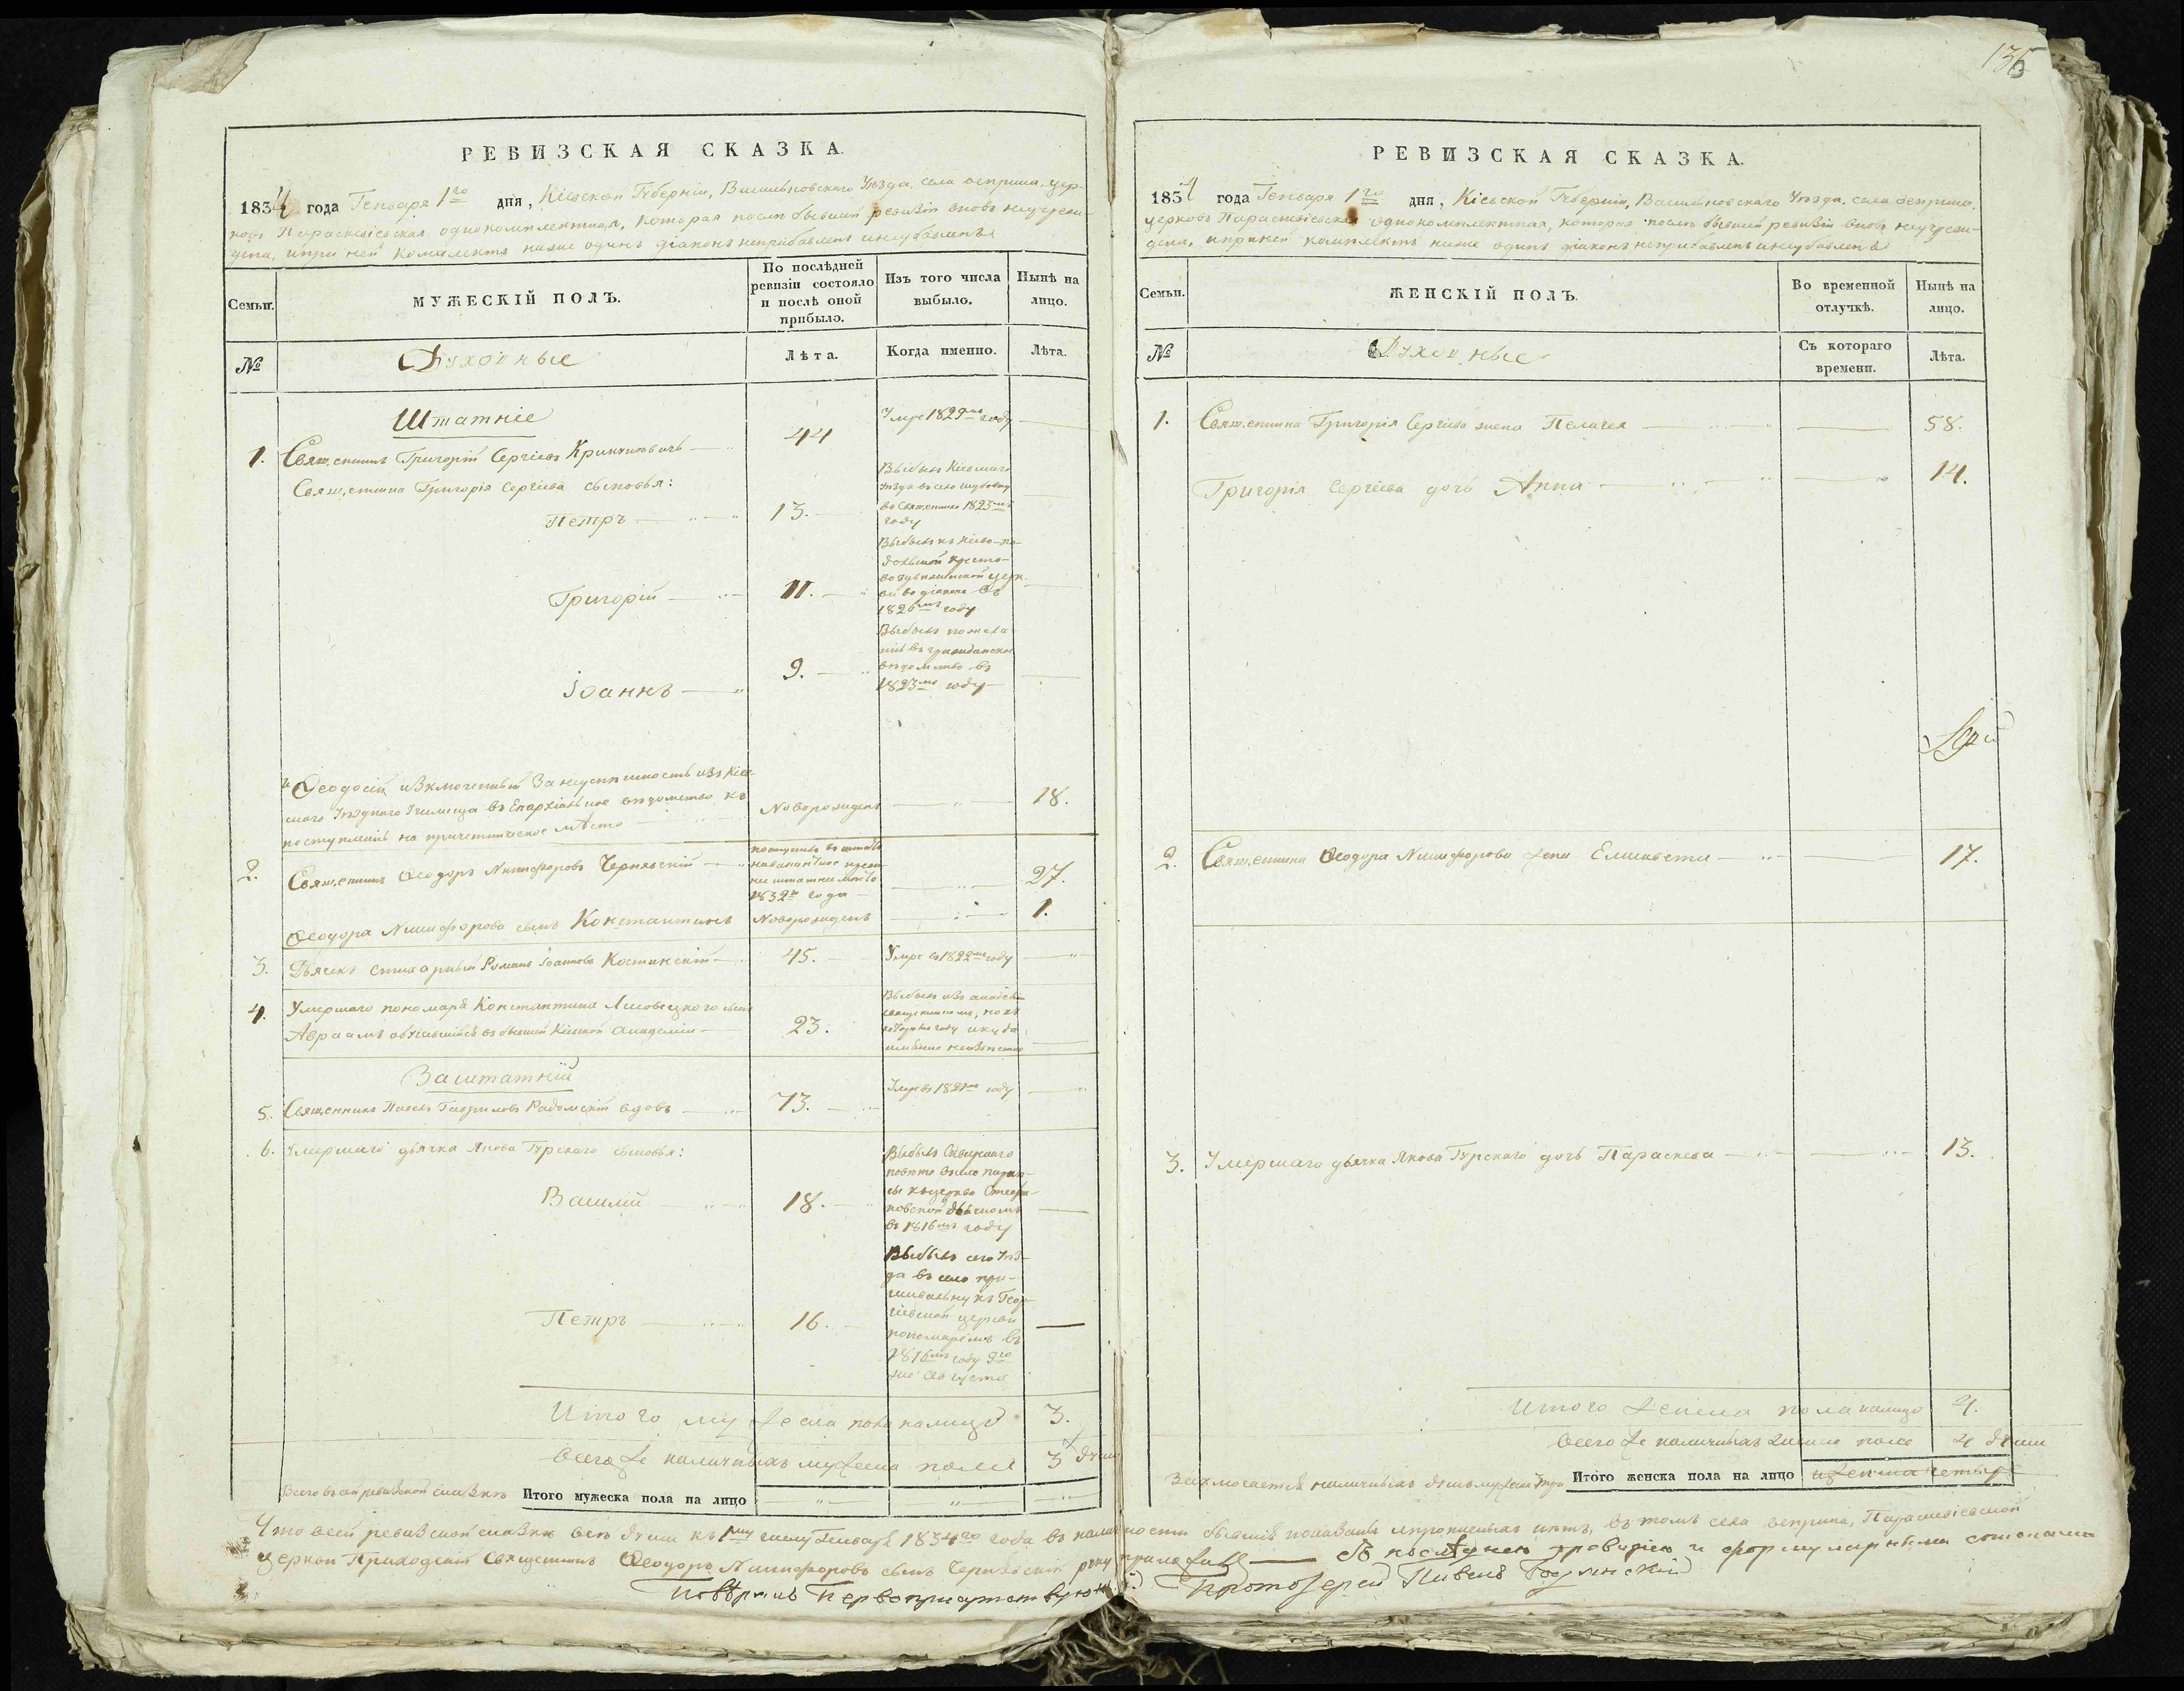 135
РЕВИЗСКАЯ СКАЗКА.
1834 года Генваря 1го дня, Кіевской Губерніи, Васильковскаго Уѣзда, села Веприка, цер-
ковь Параскевіевская однокомплектная, которая послѣ бывшей ревизіи вновь неучреж-
дена, и при ней комплектъ ниже одинъ діаконъ неприбавленъ и неубавленъ
Семьи.
МУЖЕСКІЙ ПОЛЪ.
По послѣдней
ревизіи состояло
и послѣ оной
прибыло.
Изъ того числа
выбыло.
Нынѣ на
лицо.
№
Духовные
Лѣта.
Когда именно.
Лѣта.
Штатніе
1. Священникъ Григорій Сергіевъ 44 Умре 1829го году
Священника Григорія Сергіева сыновья:
Петръ 13. Выбылъ Кіевскаго
Уѣзда въ село
во Священника 1823мъ
году
Григорій 11. Выбылъ къ Кіево-по-
дольской кресто-
воздвиженской церк-
ви во діакона въ
1826мъ году
Іоаннъ 9. Выбылъ по жела-
нію въ гражданское
вѣдомство въ
1823мъ году
4 Ѳеодосій изключенный за неуспѣшность изъ Кіев-
скаго Уѣзднаго Училища въ Епархіальное вѣдомство къ
поступленію на причетническое мѣсто Новорожденъ 18.
2. Священникъ Ѳеодоръ Никифоровъ Чернявскій поступилъ
1832го года 27.
Ѳеодора Никифорова сынъ Константинъ Новорожденъ 1.
3. Дьячекъ стихарный Романъ Іоанновъ Костинскій 45. Умре въ 1822мъ году
4. Умершаго пономаря Константина Лисовецкого сынъ
Авраамъ обучавшійся въ бывшей Кіевской Академіи 23. Выбылъ изъ академіи
священникомъ, но въ
которомъ году и куда
именно неизвѣстно
Заштатній
5. Священникъ Павелъ Гавриловъ Радомскій вдовъ 73. Умре въ 1821мъ году
6. Умершаго дьячка Якова Гурскаго сыновья:
Василій 18. Выбылъ Сквирскаго
повѣта въ село
къ церкви
дьячкомъ
въ 1816мъ году
Петръ 16. Выбылъ сего Уѣз-
да въ село при-
шивальну къ Геор-
гіевской церкви
пономаремъ въ
1816мъ году 9го
августа
Итого мужеска пола налицо 3.
Всего же наличныхъ мужеска пола 3 души
Всего въ сей ревизской сказкѣ Итого мужеска пола на лицо
РЕВИЗСКАЯ СКАЗКА.
1834 года Генваря 1го дня, Кіевской Губерніи, Васильковскаго Уѣзда, села Веприка,
церковь Параскевіевская однокомплектная, которая послѣ бывшей ревизіи вновь неучреж-
дена, и при ней комплектъ ниже одинъ діаконъ неприбавленъ и неубавленъ
Семьи.
ЖЕНСКІЙ ПОЛЪ.
Во временной
отлучкѣ.
Нынѣ на
лицо.
№
Духовные
Съ котораго
времени.
Лѣта.
1. Священника Григорія Сергіева жена Пелагея 58.
Григорія Сергіева дочь Анна 14.
2. Священника Ѳеодора Никифорова жена Елисавета 17.
3. Умершаго дьячка Якова Гурскаго дочь Параскева 13.
Итого женска пола налицо 4.
Всего же наличныхъ женска пола 4 души
Заключается наличныхъ душъ мужеска три Итого женска пола на лицо и женска четыре
Что в сей ревизской сказкѣ всѣ души къ 1му числу Генваря 1834го года въ наличности бывшія показаны и прописныхъ нѣтъ, въ томъ села Веприка, Параскевіевской
церкви Приходскій Священникъ Ѳеодоръ Никифоровъ сынъ Чернявскій руку приложилъ
Повѣрялъ Первоприсутствующій Протоіерей